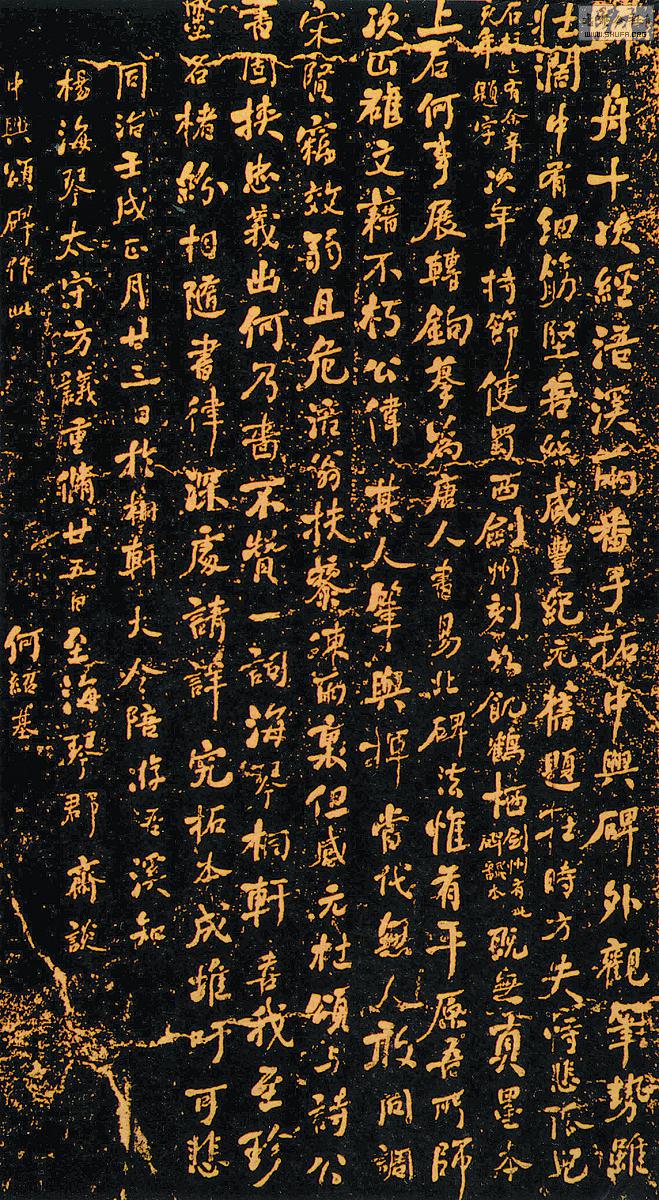 歸舟十次經浯溪兩番手拓中興碑外觀筆勢雖
壯闊中有細筋堅若絲咸豐紀元舊題在時方失恃悲孤兒
石柱上有余辛亥年題字次年持節使蜀西劍州刻如飢鶴栖劍州有此碑翻本既無真墨本
上石何事展轉鉤摹為唐人書易北碑法惟有平原吾所師
次山雄文藉不朽公偉其人筆與揮當代無人敢同調
宋賢竊效弱且危涪翁扶藜凍雨裏但感元杜頌与詩公
書固挾忠義出何乃嗇不贊一詞海琴桐軒喜我至珍
墨名楮紛相隨書律深處請詳究拓本成堆吁可悲
同治壬戌正月廿三日於桐軒大令陪游吾溪知
楊海琴太守方議重脩廿五日至海琴郡齋談
中興頌碑作此 何紹基
WWW.SHUFA.ORG